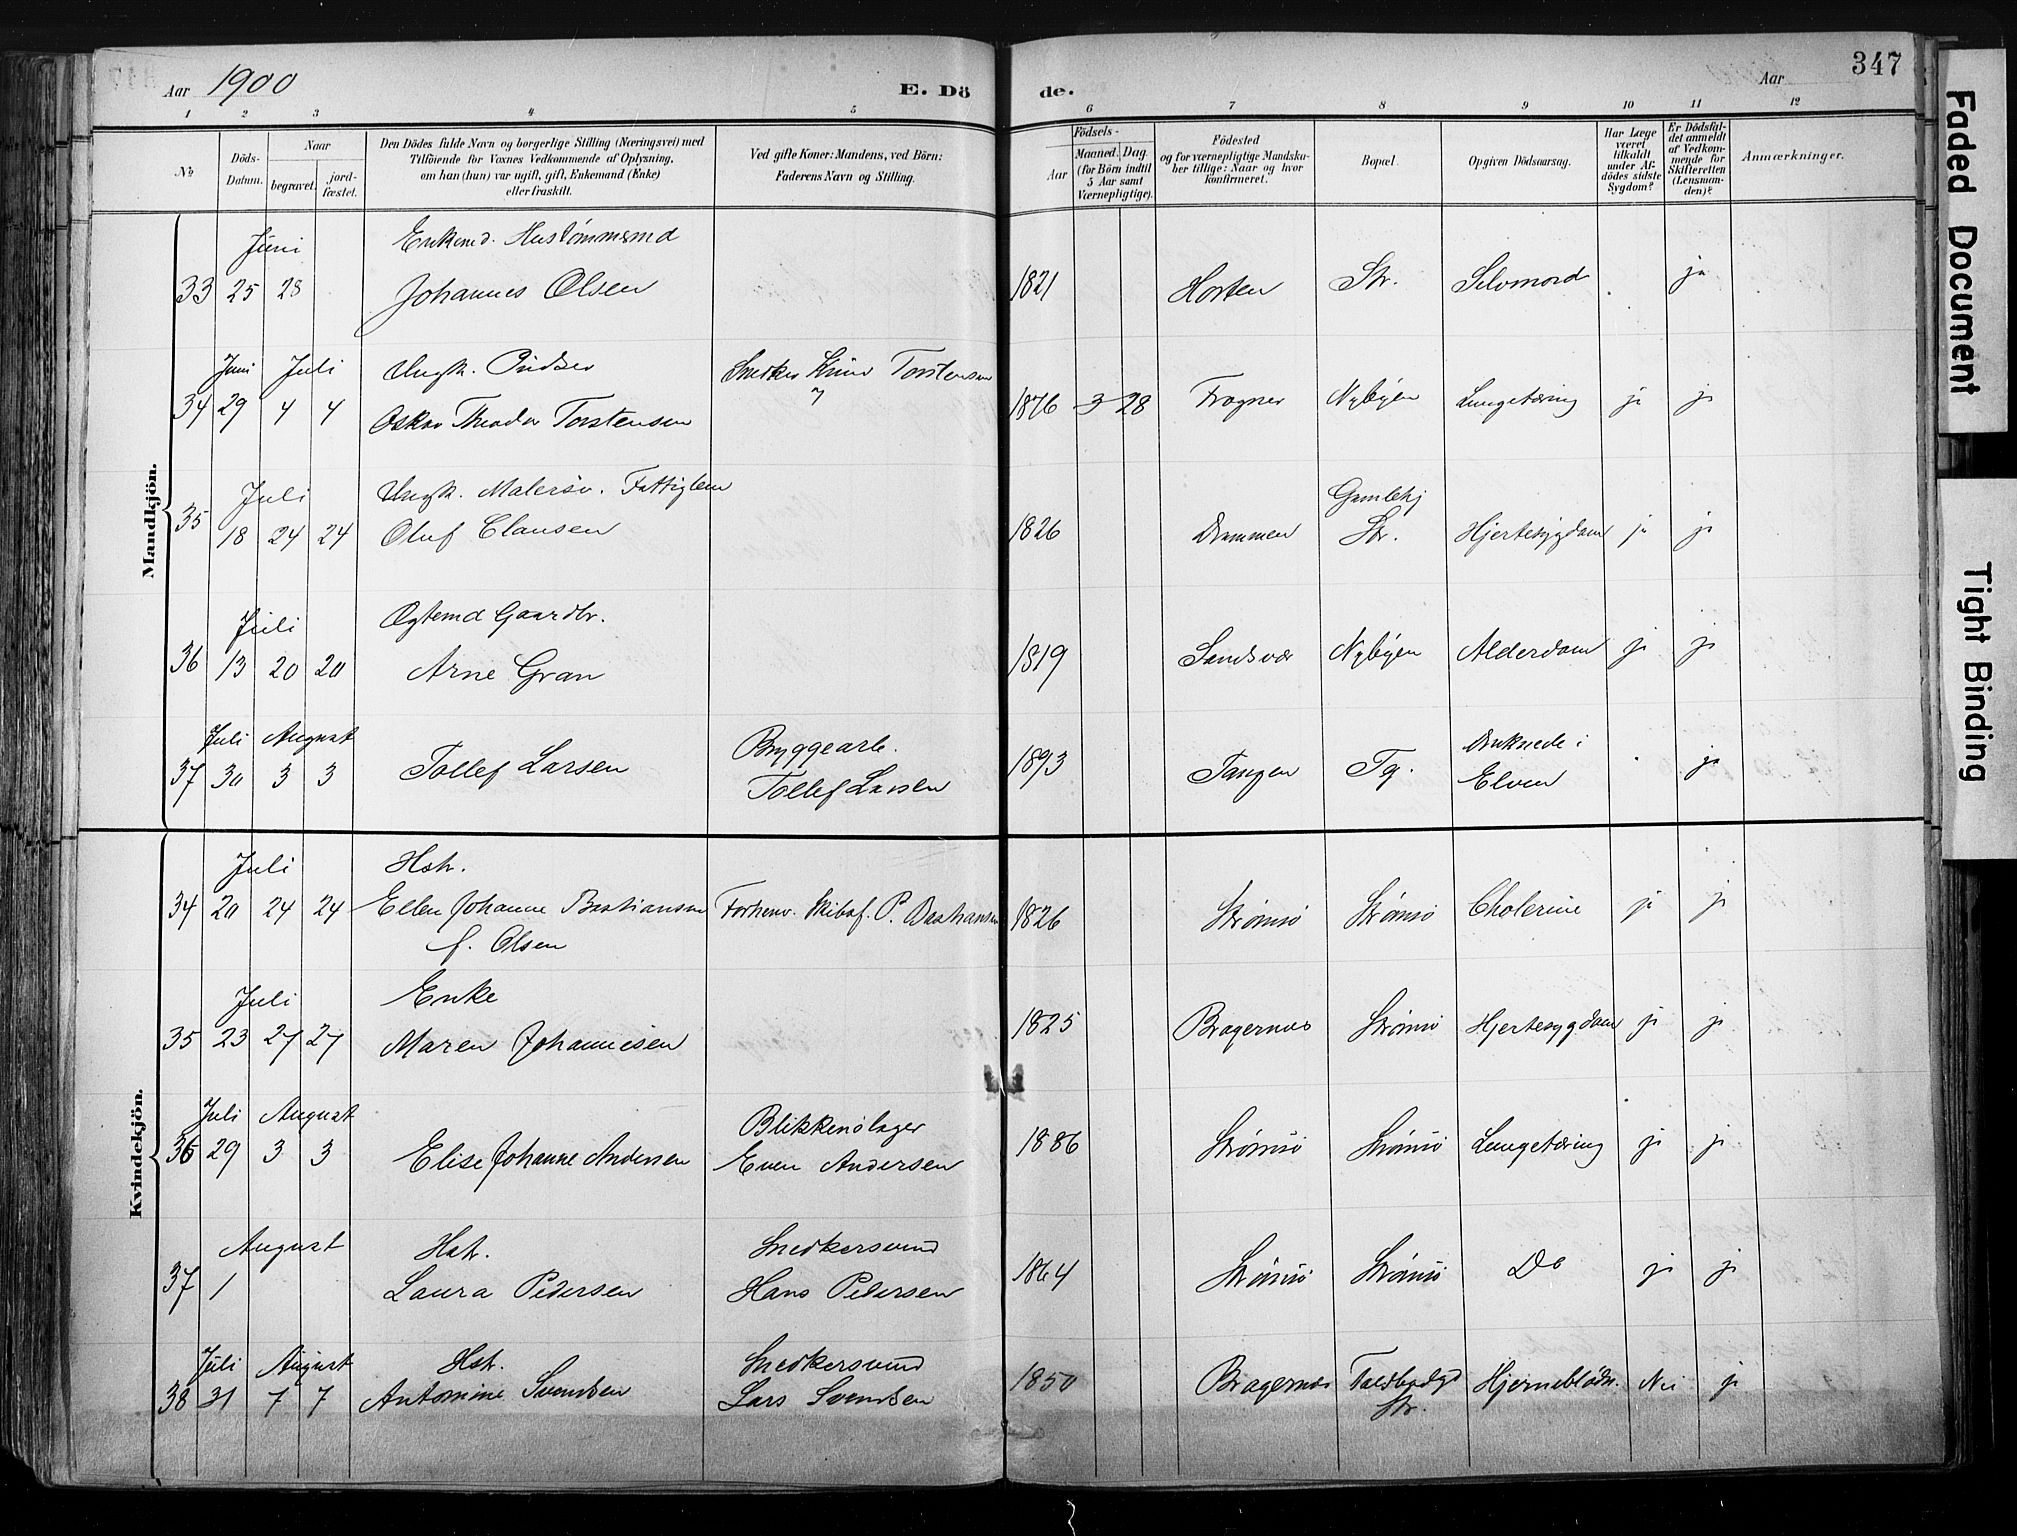 Aar 1900
E. Dö
de.
Aar
347
1 2 3 4 5 6 7 8 9 10 11 12
No
Döds-Datum.
Naar
begravet.
jord-fæstet.
Den Dödes fulde Navn og borgerlige Stilling (Næringsvei) med
Tilföiende for Voxnes Vedkommende af Oplysning,
om han (hun) var ugift, gift, Enkemand (Enke)
eller fraskilt.
Ved gifte Koner: Mandens, ved Börn:
Faderens Navn og Stilling.
Födsels-
Aar
Maaned. Dag.
(for Börn indtil
5 Aar samt
Værnepligtige).
Födested
og for værnepligtige Mandska-
ber tillige: Naar og hvor
konfirmeret.
Bopæl.
Opgiven Dödsaarsag.
Har Læge
været
tilkaldt
under Af-
dödes sidste
Sygdom?
Er Dödsfal-
det anmeldt
af Vedkom-
mende for
Skifteretten
(Lensman-
den)?
Anmærkninger.
Mandkjön.
Juni Enkemd. Hustømmermd
33 25 28 Johannes Olsen 1821 Horten Str. Selvmord ja
Juni Juli Ungk. Snedker Torstensen
34 29 4 4 Oskar Theodor Torstensen 1876 3 28 Frogner Nybyen Lungetæring ja ja
Juli Ungk. Malersv. Fattiglem Gamlehj
35 18 24 24 Oluf Clausen 1826 Drammen Str. Hjertesygdom ja ja
Juli Ogtemd Gaardbr.
36 13 20 20 Arne Gran 1819 Sandsvær Nybyen Alderdom ja ja
Juli August Bryggearb. Druknede i
37 30 3 3 Tollef Larsen Tollef Larsen 1893 Tangen Tg. Elven ja
Kvindekjön.
Juli Hst.
34 20 24 24 Ellen Johanne Bastiansen Forhenv. Skibsf. P. Bastiansen 1826 Strømsö Strømsö Cholerine ja ja
f. Olsen
Juli Enke
35 23 27 27 Maren Johannesen 1825 Bragernæs Strømsö Hjertesygdom ja ja
Juli August Blikkenslager
36 29 3 3 Elise Johanne Andersen Even Andersen 1886 Strømsö Strømsö Lungetæring ja ja
August Hst. Snedkersvend
37 1 Laura Pedersen Hans Pedersen 1864 Strømsö Strømsö Do ja ja
Juli August Hst. Snedkersvend
38 31 7 7 Antomine Svendsen Lars Svendsen 1850 Bragernæs Toldbodgd Hjerneblødn. Nei ja
Str.
Faded Document
Tight Binding